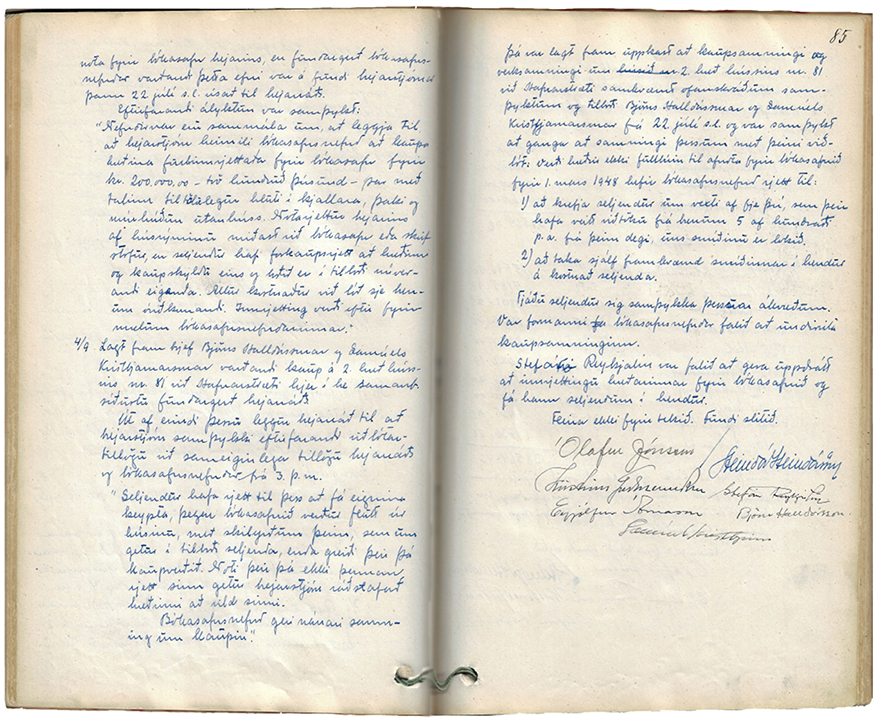 nota fyrir bókasafn bæjarins, en fundargerð bókasafns-
nefndar varðandi þetta efni var á fundi bæjarstjórnar
þann 22. júlí s.l. vísað til bæjarráðs.
Eftirfarandi ályktun var samþykkt:
"Nefndirnar eru sammála um, at leggja til
at bæjarstjórn heimili bókasafnsnefnd at kaupa
hæðina fullinnrjettaða fyrir bókasafn fyrir
kr. 200.000,00 - tvö hundruð þúsund - þar með
talinn tiltölulegur hluti í kjallara, þaki og
múrhúðun utanhúss. Notarjettur bæjarins
af húsrýminu miðast við bókasafn eða skrif-
stofur, en seljendur hafi forkaupsrjett at hæðinni
og kaupskyldu eins og boðið er í tilboði núver-
andi eiganda. Allur kostnaður við lóð sje hon-
um óviðkomandi. Innrjetting verði eftir fyrir
mælum bókasafnsnefndarinnar."
4/9. Lagt fram brjef Björns Halldórssonar og Samúels
Kristjánssonar varðandi kaup á 2. hæð húss-
ins nr. 81 við Hafnarstræti
síðustu fundargerð bæjarráðs
Út af erindi þessu leggur bæjarráð til at
bæjarstjórn samþykki eftirfarandi viðbótar-
tillögu við sameiginlega tillögu bæjarráðs
og bókasafnsnefndar frá 3. þ.m.
"Seljendur hafa rjett til þess at fá eignina
keypta, þegar bókasafnið verður flutt úr
húsinu, með skilyrðum þeim, sem um
getur í tilboði seljenda, enda greiði þeir þá
kaupverðið. Noti þeir þá ekki þennan
rjett sinn getur bæjarstjórn ráðstafað
hæðinni at vild sinni.
Bókasafnsnefnd geri nánari samn-
ing um kaupin."
85
Þá var lagt fram uppkast at kaupsamningi og
verksamningi um 2. hæð hússins nr. 81
við Hafnarstræti samkvæmt ofanskráðum sam-
þykktum og tilboði Björns Halldórssonar og Samúels
Kristjánssonar frá 22. júlí s.l. og var samþykkt
at ganga at samningi þessum með þeirri við-
bót: Verði hæðin ekki fullbúin til afnota fyrir bókasafnið
fyrir 1. mars 1948 hefir bókasafnsnefnd rjett til:
1) at krefja seljendur um vexti af fje því, sem þeir
hafa veitt viðtöku frá honum 5 af hundraði
p.a. frá þeim degi, uns smíðinni er lokið.
2) at taka sjálf framkvæmd smíðinnar í hendur
á kostnað seljenda.
Tjáðu seljendur sig samþykka þessum ákvæðum.
Var formanni bókasafnsnefndar falið at undirrita
kaupsamninginn.
Stefáni Reykjalín var falið at gera uppdrátt
at innrjettingu hæðarinnar fyrir bókasafnið og
fá hann seljendum í hendur.
Fleira ekki fyrir tekið. Fundi slitið.
Ólafur Jónsson
Steindór Steindórsson
Kristinn Guðmundsson Stefán Reykjalín
Eyjólfur Árnason Björn Halldórsson
Samúel Kristjánsson